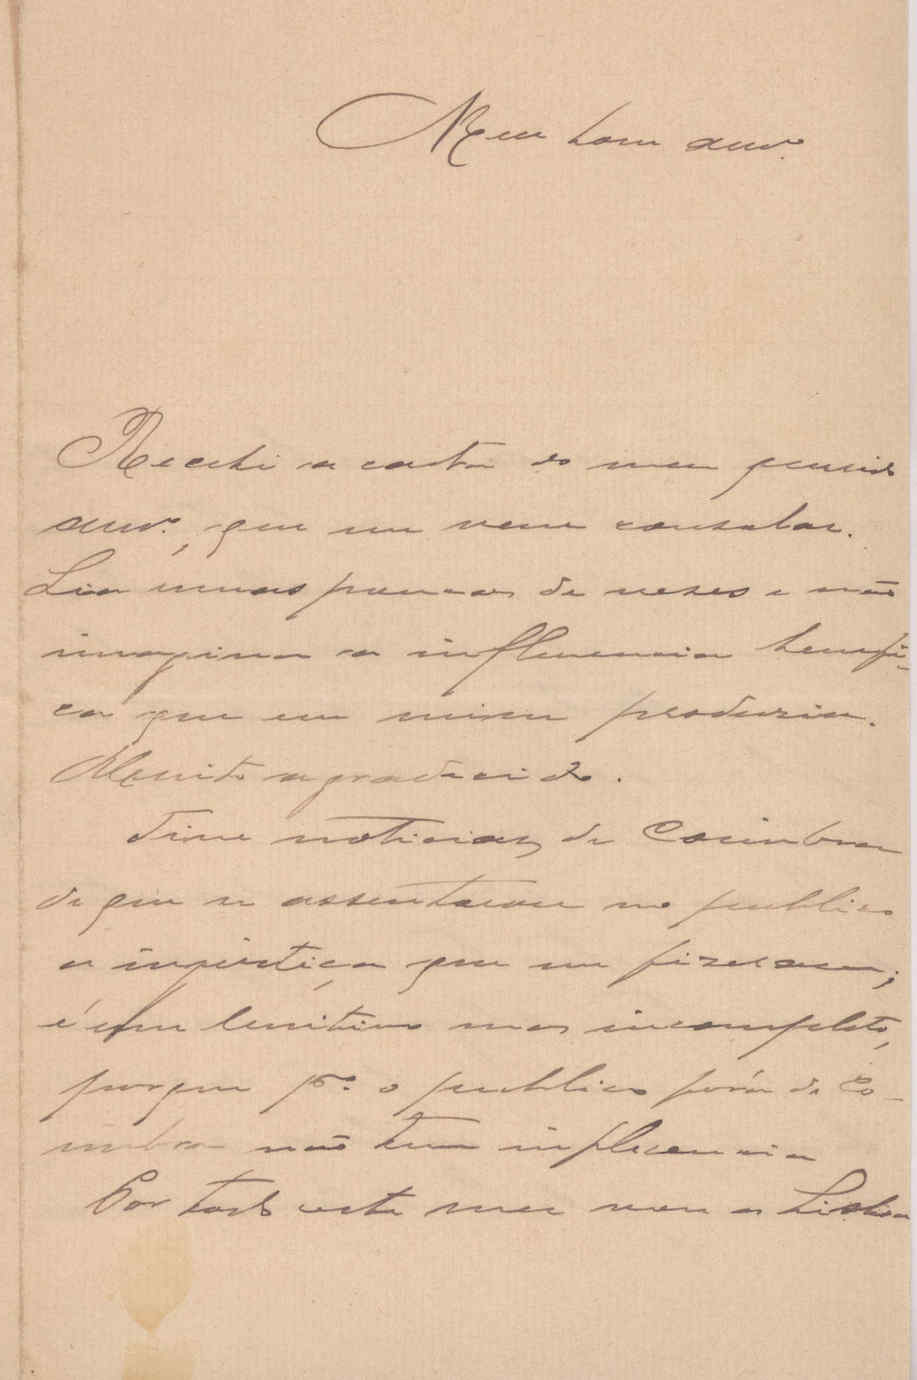 Meu bom am.º
Recebi a carta do meu querido
am.º, que me veio consolar.
Li-a umas poucas de vezes e não
imagina a influencia benefi-
ca que em mim produzia.
Muito agradecido.
Tive noticias de Coimbra
de que se assentaram no publico
a injustiça que me fizeram;
é um lenitivo mas incompleto,
porque p.ª o publico fóra de Co-
imbra não tem influencia
Por todo este mez vou a Lisboa